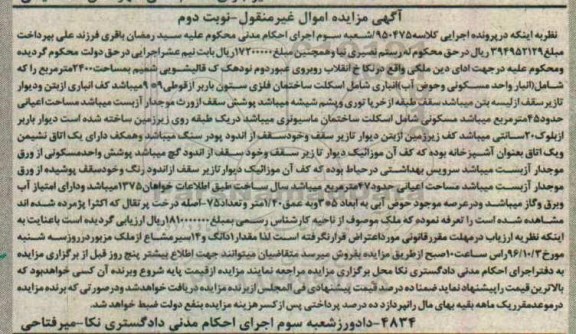 آگهی مزایده اموال غیرمنقول-نوبت دوم
نظریه اینکه درپرونده اجرایی کلاسه ۹۵۰۴۷۵/شعبه سوم اجرای احکام مدنی محکوم علیه سید رمضان باقری فرزند علی بپرداخت
مبلغ ۳۹۴۹۵۲۱۲۹ ریال در حق محکوم له رستم نصیری نیا وهمچنین مبلغ ۱۷۲۰۰۰۰۰ ریال بابت نیم عشراجرایی در حق دولت محکوم گردیده
ومحکوم علیه در جهت ادای دین ملکی واقع درنکا خ انقلاب روبروی عبوردوم نودهک ک قالیشویی شمیم بمساحت ۲۴۰۰مترمربع را که
شامل(انبار واحد مسکونی وحوض آب)انباری شامل اسکلت ساختمان فلزی ستون باربر از قوطی ۹*۹میباشد کف انباری ازبتن ودیوار
تازیر سقف از لیسه بتن میباشد سقف طبقه از خرپا توری وپشم شیشه میباشد پوشش سقف ازورت موجدار آزبست میباشد مساحت اعیانی
حدود۴۵مترمربع میباشد مسکونی شامل اسکلت ساختمان ماسیونری میباشد دریک طبقه روی زیرزمین ساخته شده است دیوار باربر
ازبلوک۲۰سانتی میباشد کف زیرزمین ازبتن دیوار تازیر سقف وخودسقف از اندود پودر سنگ میباشد وهمکف دارای یک اتاق نشیمن
ویک اتاق بعنوان آشپزخانه بوده که کف آن موزائیک دیوار تا زیر سقف وخود سقف از اندود گچ میباشد پوشش واحدمسکونی از ورق
موجدار آزبست میباشد سرویس بهداشتی درحیاط بوده که کف آن موزائیک دیوار تازیر سقف ازاندود رنگ وخودسقف پوشیده از ورق
موجدار آزبست میباشد مساحت اعیانی حدود۴۷مترمربع میباشد سال ساخت طبق اطلاعات خواهان۱۳۷۵میباشد ودارای امتیاز آب
وبرق وگاز میباشد ودرعرصه موجود حوض آبی به ابعاد ۳۰۵ وبه عمق ۱/۴۰متر وتعداد۷۵-اصله درخت پرتقال که اکثرا پژمرده شده اند
مشاهده شده است را تعرفه نموده که ملک موصوف از ناحیه کارشناس رسمی بمبلغ ۱۸۱۰۰۰۰۰۰۰ریال ارزیابی گردیده است باعنایت به
اینکه نظریه ارزیاب درمهلت مقررقانونی مورداعتراض قرارنگرفته است لذا مقدار۱دانگ و۱۴سیرمشاع ازملک مزبوردرروزسه شنبه
مورخ ۹۶/۱۰/۳راس ساعت۱۰صبح ازطریق مزایده بفروش میرسد متقاضیان میتوانند جهت اطلاع بیشتر پنج روز قبل از برگزاری مزایده
به دفتراجرای احکام مدنی دادگستری نکا محل برگزاری مزایده مراجعه نمایند مزایده ازقیمت پایه شروع وبرنده آن کسی خواهدبود که
بالاترین قیمت راپیشنهاد نماید ضمنا ده درصد قیمت پیشنهادی فی المجلس ازبرنده مزایده دریافت خواهدشد ودرصورتی که برنده مزایده
درموعدمقرریک ماهه بقیه بهای مال رانپردازد ده درصد پرداختی پس از کسرهزینه مزایده بنفع دولت ضبط خواهد شد.
۴۸۳۴-دادورزشعبه سوم اجرای احکام مدنی دادگستری نکا-میرفتاحی